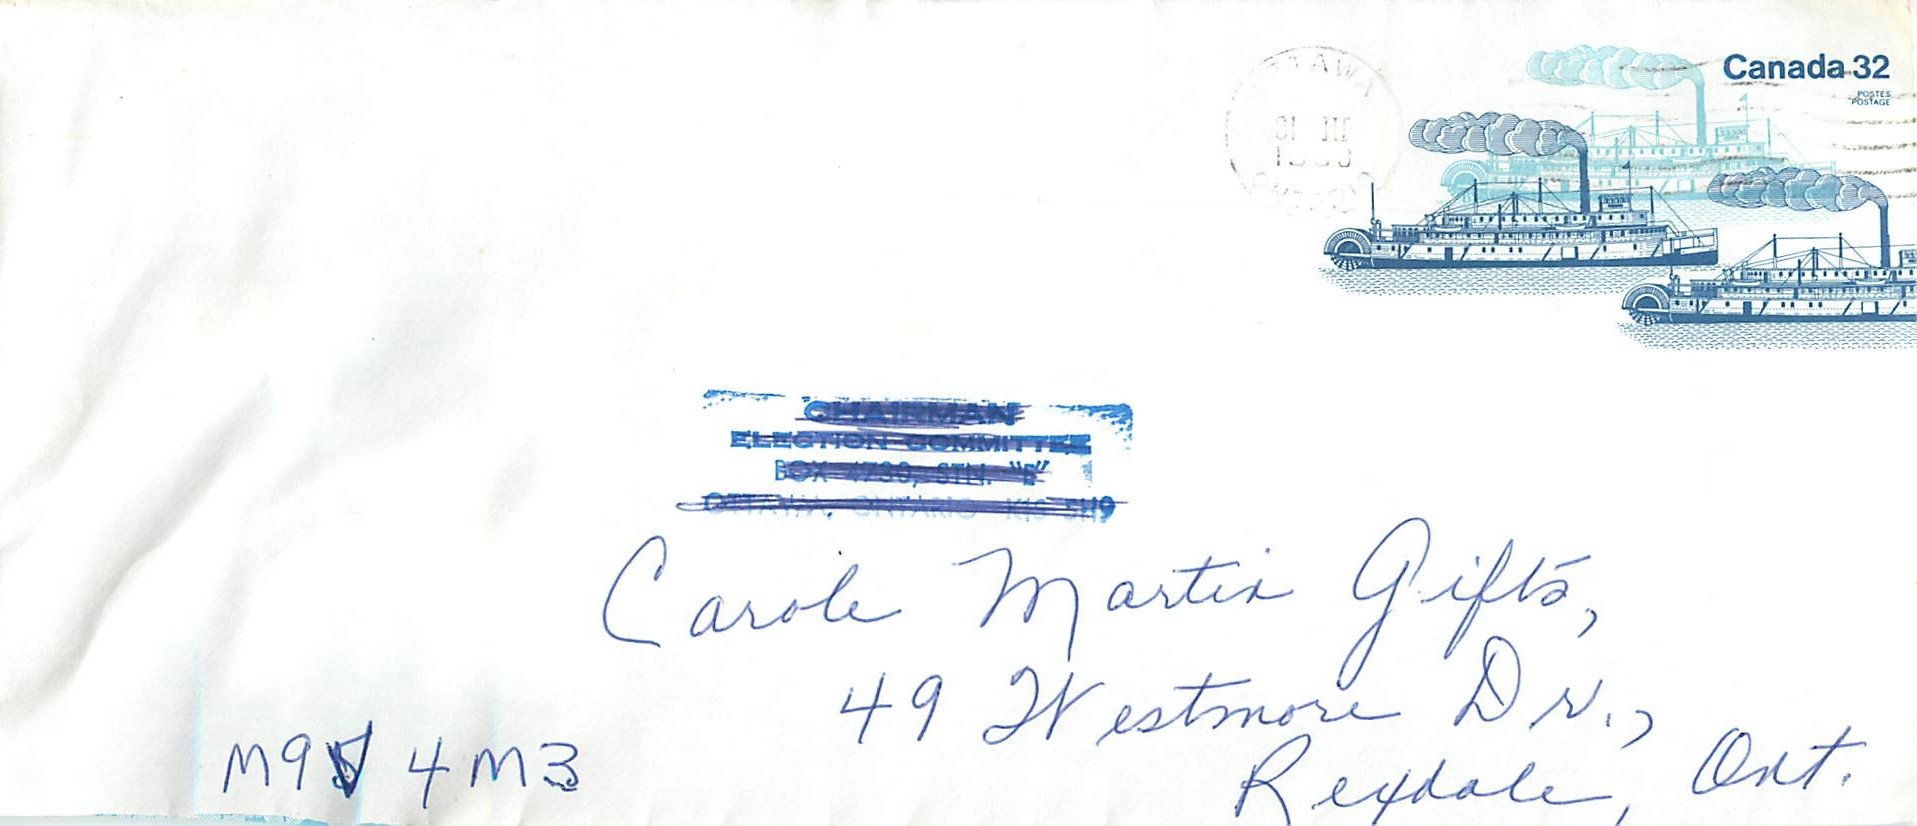 Canada 32
POSTES
POSTAGE
CHAIRMAN
ELECTION COMMITTEE
BOX STN. "E"
OTTAWA, ONTARIO K1S 5H9
Carole Martin Gifts,
49 Westmore Dr.,
Rexdale, Ont.
M9V 4M3